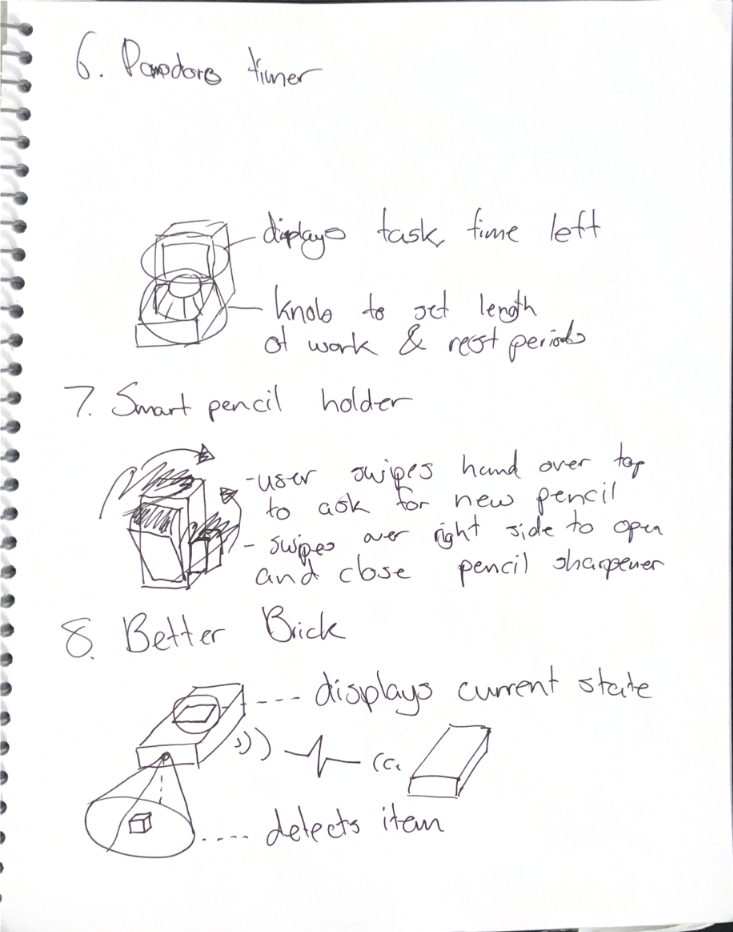 6. Pomodoro timer
displays task, time left
knob to set length
of work & rest periods
7. Smart pencil holder
- user swipes hand over top
to ask for new pencil
- swipes over right side to open
and close pencil sharpener
8. Better Brick
displays current state
detects item